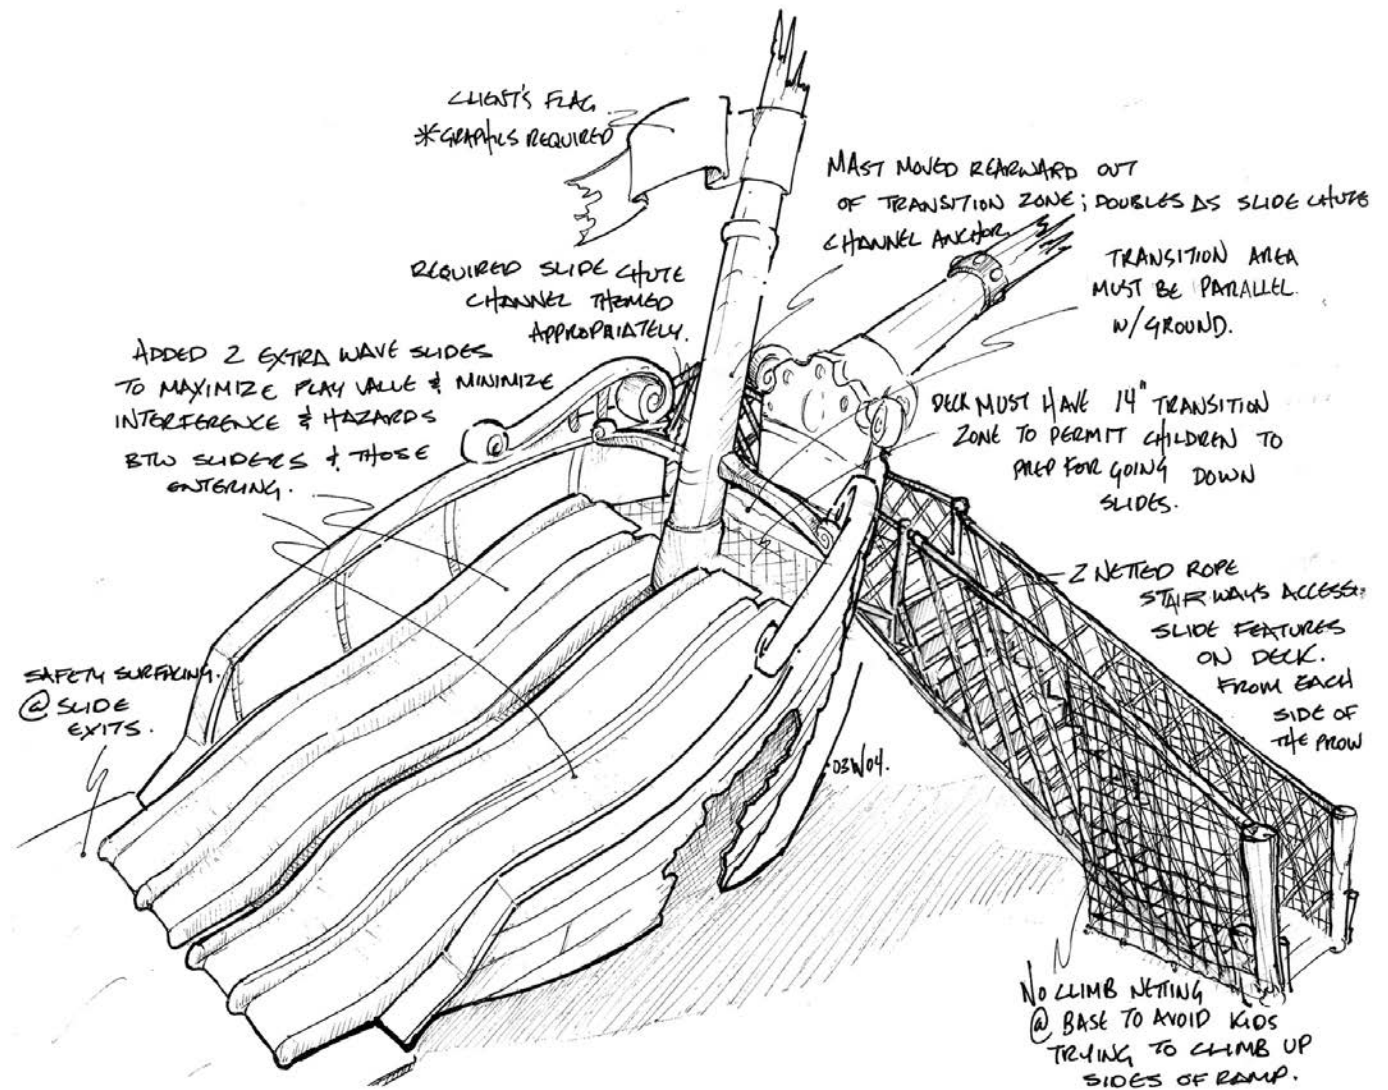 CLIENT'S FLAG
*GRAPHICS REQUIRED
MAST MOVED REARWARD OUT
OF TRANSITION ZONE; DOUBLES AS SLIDE CHUTE
CHANNEL ANCHOR.
TRANSITION AREA
MUST BE PARALLEL
W/GROUND.
REQUIRED SLIDE CHUTE
CHANNEL THEMED
APPROPRIATELY.
ADDED 2 EXTRA WAVE SLIDES
TO MAXIMIZE PLAY VALUE & MINIMIZE
INTERFERENCE & HAZARDS
BTW SLIDERS & THOSE
ENTERING.
DECK MUST HAVE 14" TRANSITION
ZONE TO PERMIT CHILDREN TO
PREP FOR GOING DOWN
SLIDES.
2 NETTED ROPE
STAIRWAYS ACCESS
SLIDE FEATURES
ON DECK.
FROM EACH
SIDE OF
THE PROW
SAFETY SURFACING.
@ SLIDE
EXITS.
03W04.
NO CLIMB NETTING
@ BASE TO AVOID KIDS
TRYING TO CLIMB UP
SIDES OF RAMP.